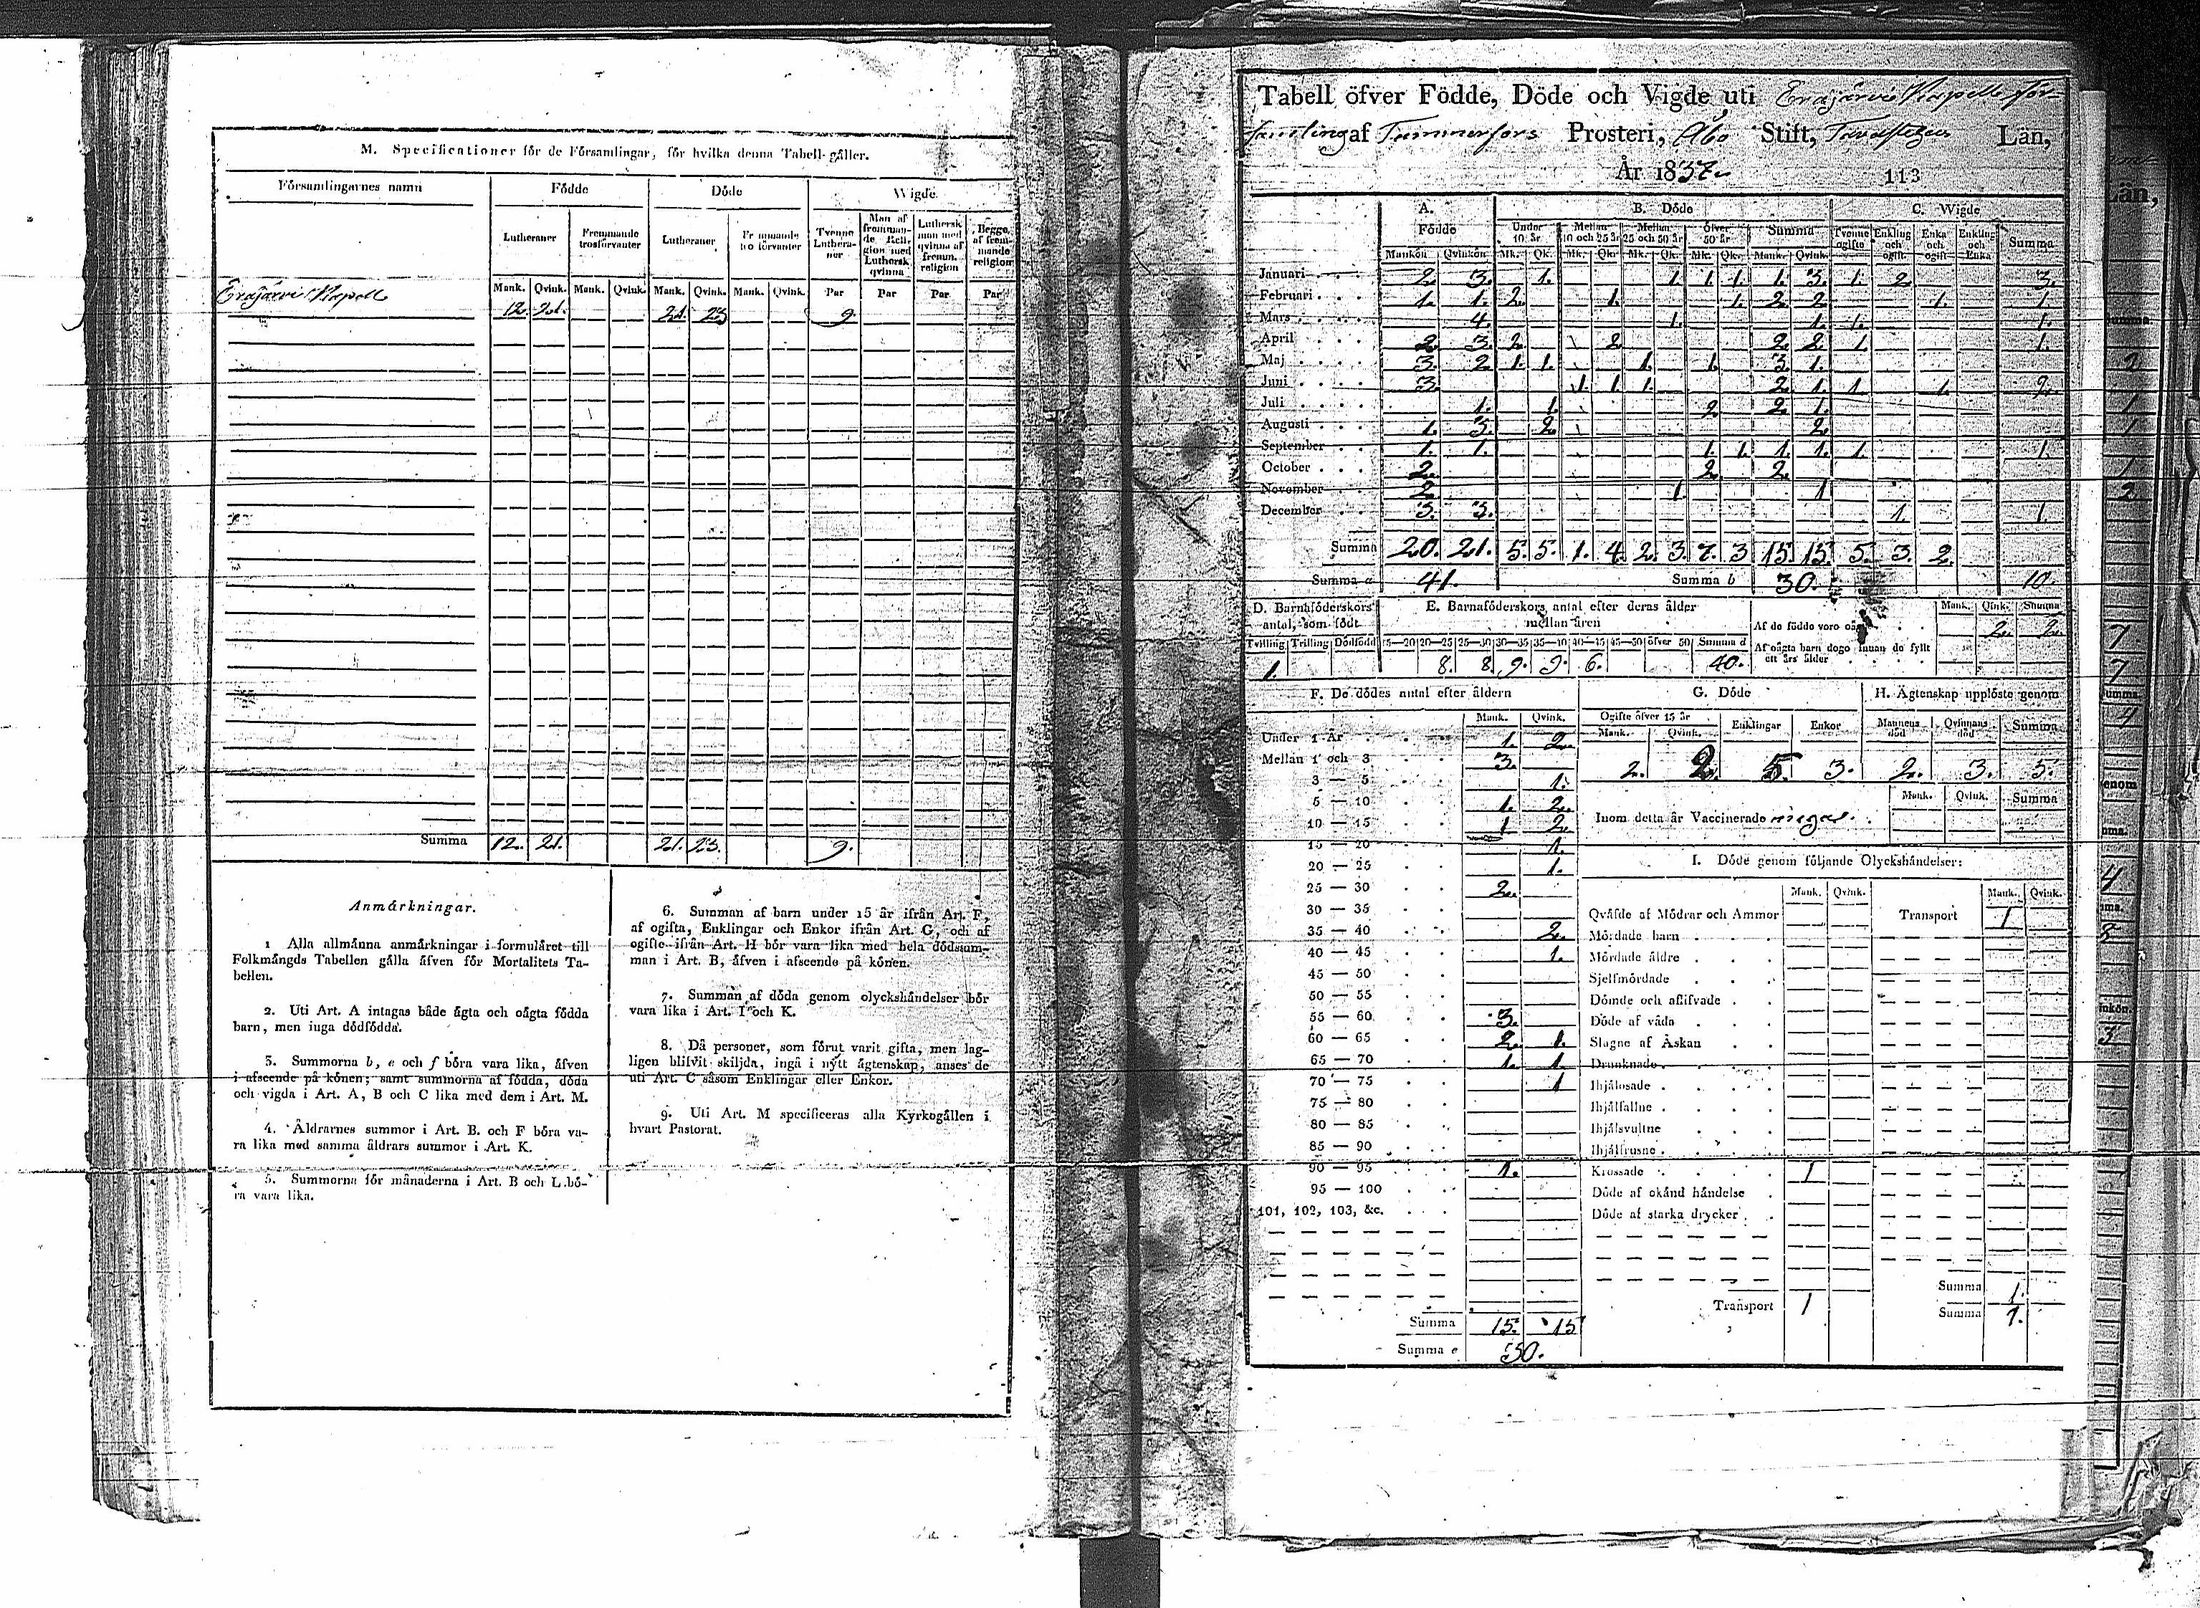 M. Specificationer för de Församlingar, för hvilka denna Tabell gäller.
Församlingarnes namn Födde Döde Wigde
Lutheraner Fremmande trosförvanter Lutheraner Fremmande trosförvanter Tvenne Lutheraner Man af fremmande Religion med Luthersk qvinna Luthersk man med qvinna af fremm. religion Begge af fremmande religion
Mank. Qvink. Mank. Qvink. Mank. Qvink. Mank. Qvink. Par Par Par Par
Erajärvi Kapell 12 21. 21 23 9.
Summa 12. 21. 21. 23. 9.
Anmärkningar.
1 Alla allmänna anmärkningar i formuläret till
Folkmängds Tabellen gälla äfven för Mortalitets Ta-
bellen.
2. Uti Art. A intagas både ägta och oägta födda
barn, men inga dödfödda.
3. Summorna b, e och f böra vara lika, äfven
i afseende på könen; samt summorna af födda, döda
och vigda i Art. A, B och C lika med dem i Art. M.
4. Åldrarnes summor i Art. B. och F böra va-
ra lika med samma åldrars summor i Art. K.
5. Summorna för månaderna i Art. B och L bö-
ra vara lika.
6. Summan af barn under 15 år ifrån Art. F,
af ogifta, Enklingar och Enkor ifrån Art. G, och af
ogifte ifrån Art. H bör vara lika med hela dödsum-
man i Art. B, äfven i afseende på könen.
7. Summan af döda genom olyckshändelser bör
vara lika i Art. I och K.
8. Då personer, som förut varit gifta, men lag-
ligen blifvit skiljda, ingå i nytt ägtenskap, anses de
uti Art. C såsom Enklingar eller Enkor.
9. Uti Art. M specificeras alla Kyrkogällen i
hvart Pastorat.
Tabell öfver Födde, Döde och Vigde uti Erajärvi Kapells för-
samling af Tammerfors Prosteri, Åbo Stift, Tavastehus Län,
År 1837 113
A. Födde B. Döde C. Wigde
Under 10 år Mellan 10 och 25 år Mellan 25 och 50 år Öfver 50 år Summa Tvenne ogifte Enkling och ogift Enka och ogift Enkling och Enka Summa
Mankön Qvinkön Mk. Qk. Mk. Qk. Mk. Qk. Mk. Qk. Mank. Qvink.
Januari 2. 3. 1. 1. 1. 1. 1. 3. 1. 2. 3.
Februari 1. 1. 2. 1. 1. 2. 2. 1. 1.
Mars 4. 1. 1. 1. 1.
April 2. 3. 2. 2. 2. 2. 1. 1.
Maj 3. 2 1. 1. 1. 1. 3. 1.
Juni 3. 1. 1. 1. 2. 1. 1. 1. 2.
Juli 1. 1. 2. 2. 1.
Augusti 1. 3. 2. 2.
September 1. 1. 1. 1. 1. 1. 1. 1.
October 2. 2. 2.
November 2. 1 1
December 3. 3. 1. 1.
Summa 20. 21. 5. 5. 1. 4. 2. 3. 7. 3 15. 15. 5. 3. 2.
Summa a 41. Summa b 30. 10.
D. Barnaföderskors antal, som födt E. Barnaföderskors antal efter deras ålder mellan åren Mank. Qink. Summa
Tvilling Trilling Dödfödd 15—20 20—25 25—30 30—35 35—40 40—45 45—50 öfver 50 Summa d
Af de födde voro oägta 2. 2.
Af oägta barn dogo innan de fyllt ett års ålder
1. 8. 8. 9. 9. 6. 40.
F. De dödes antal efter åldern
Mank. Qvink.
Under 1 År 1. 2.
Mellan 1 och 3 3.
3 — 5 1.
5 — 10 1. 2.
10 — 15 1 2.
15 — 20 1.
20 — 25 1.
25 — 30 2.
30 — 35
35 — 40 2.
40 — 45 1.
45 — 50
50 — 55
55 — 60 3.
60 — 65 2. 1.
65 — 70 1. 1.
70 — 75 1
75 — 80
80 — 85
85 — 90
90 — 95 1.
95 — 100
101, 102, 103, &c.
Summa 15. 15
Summa e 30.
G. Döde H. Ägtenskap upplöste genom
Ogifte öfver 15 år Enklingar Enkor Mannens död Qvinnans död Summa
Mank. Qvink.
2. 2. 5. 3. 2. 3. 5.
Mank. Qvink. Summa
Inom detta år Vaccinerade
I. Döde genom följande Olyckshändelser:
Mank. Qvink. Mank. Qvink.
Qväfde af Mödrar och Ammor Transport 1
Mördade barn
Mördade äldre
Sjelfmördade
Dömde och aflifvade
Döde af våda
Slagne af Åskan
Drunknade
Ihjälosade
Ihjälfallne
Ihjälsvultne
Ihjälfrusne
Krossade 1
Döde af okänd händelse
Döde af starka drycker
Summa 1.
Transport 1 Summa 1.